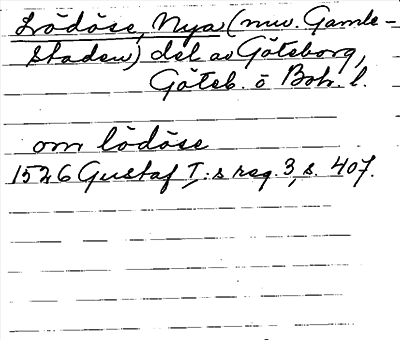 Lödöse, Nya (nuv. Gamle-
staden) del av Göteborg,
Göteb. o Boh. l.
om lödöse
1526 Gustaf I:s reg. 3, s. 407.